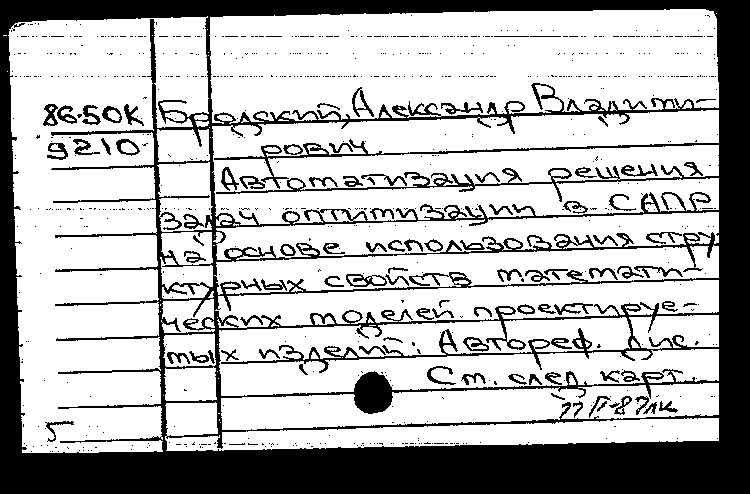 86-50К Бродский, Александр Владими-
9210 рович.
Автоматизация решения
задач оптимизации в САПР
на основе использования стру-
ктурных свойств математи-
ческих моделей проектируе-
мых изделий: Автореф. дис.
См. след. карт.
5